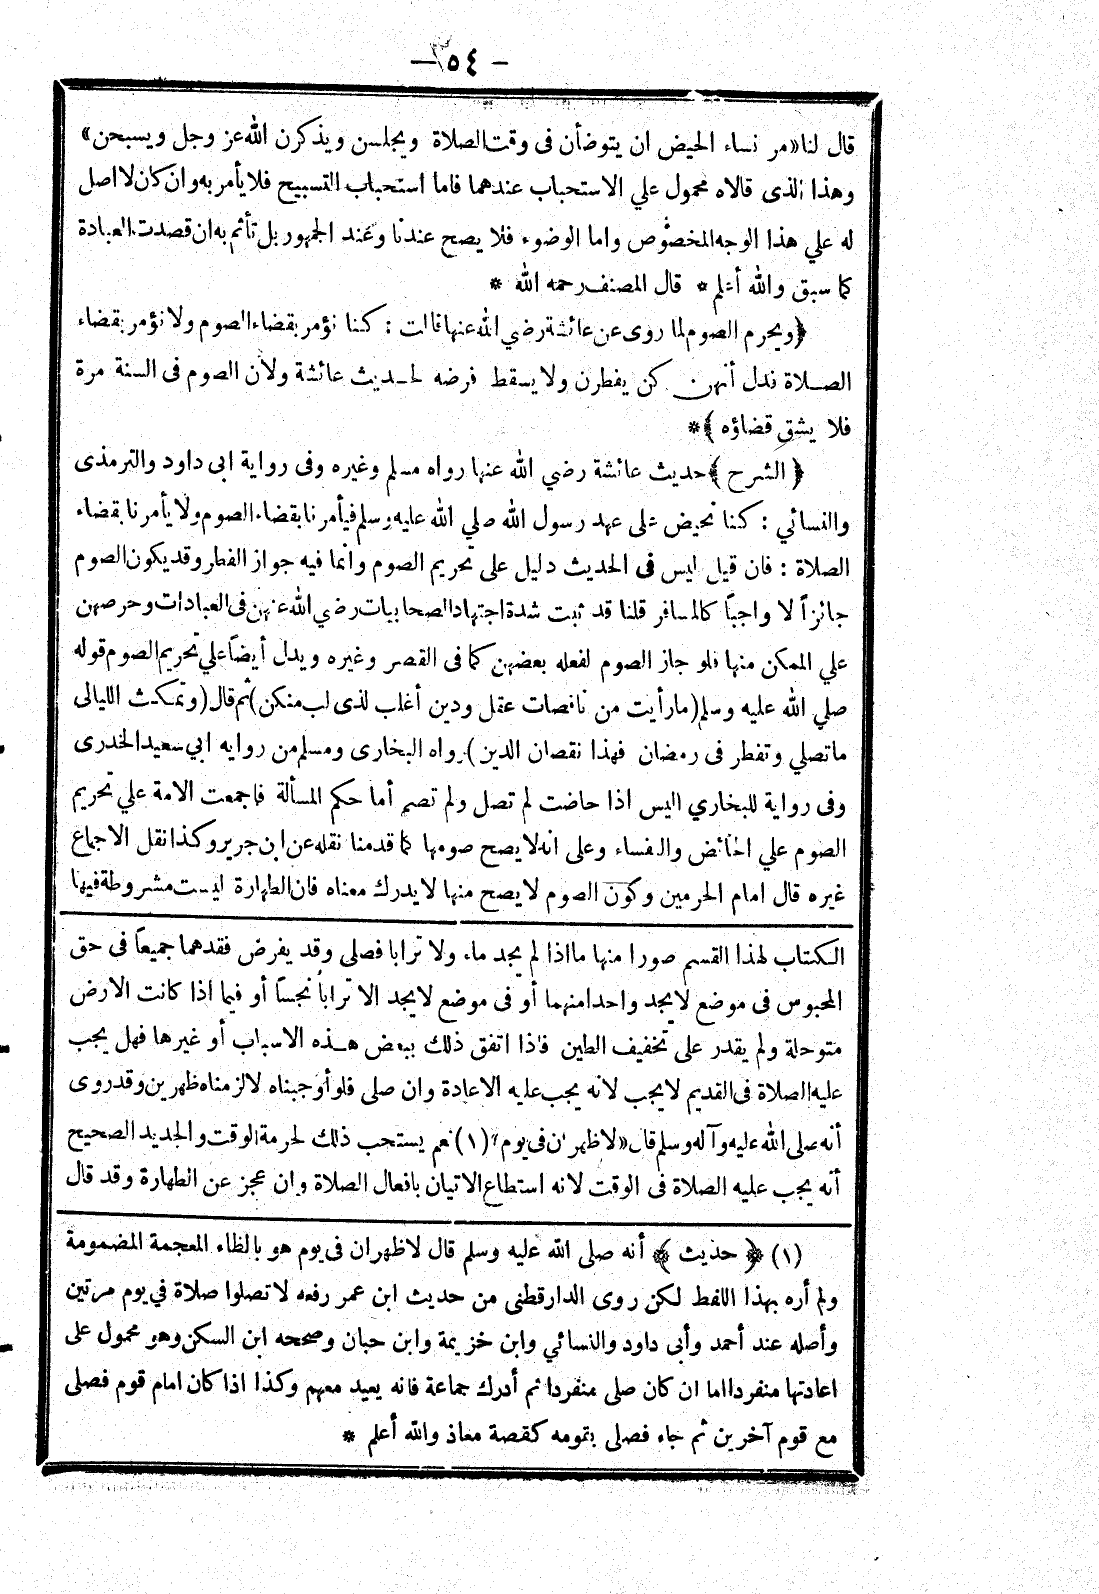 — ٣٥٤ —
قال لنا «مر نساء الحيض ان يتوضأن فى وقت الصلاة ويجلسن ويذكرن الله عز وجل ويسبحن»
وهذا الذى قالاه محمول علي الاستحباب عندهما فاما استحباب التسبيح فلا يأمر به وان كان لا اصل
له علي هذا الوجه المخصوص واما الوضوء فلا يصح عندنا وعند الجمهور بل تأثم به ان قصدت العبادة
كما سبق والله أعلم * قال المصنف رحمه الله *
﴿ويحرم الصوم لما روى عن عائشة رضي الله عنها قالت : كنا نؤمر بقضاء الصوم ولا نؤمر بقضاء
الصلاة فدل أنهن كن يفطرن ولا يسقط فرضه لحديث عائشة ولان الصوم فى السنة مرة
فلا يشق قضاؤه﴾ *
﴿الشرح﴾ حديث عائشة رضي الله عنها رواه مسلم وغيره وفى رواية ابى داود والترمذى
والنسائي : كنا نحيض على عهد رسول الله صلي الله عليه وسلم فيأمرنا بقضاء الصوم ولا يأمرنا بقضاء
الصلاة : فان قيل ليس فى الحديث دليل على تحريم الصوم وانما فيه جواز الفطر وقد يكون الصوم
جائزاً لا واجباً كالمسافر قلنا قد ثبت شدة اجتهاد الصحابيات رضي الله عنهن فى العبادات وحرصهن
علي الممكن منها فلو جاز الصوم لفعله بعضهن كما فى القصر وغيره ويدل أيضاً علي تحريم الصوم قوله
صلي الله عليه وسلم (ما رأيت من ناقصات عقل ودين أغلب لذى لب منكن) ثم قال (وتمكث الليالى
ما تصلي وتفطر فى رمضان فهذا نقصان الدين) رواه البخارى ومسلم من روايه ابي سعيد الخدرى
وفى رواية للبخاري اليس اذا حاضت لم تصل ولم تصم أما حكم المسألة فاجمعت الامة علي تحريم
الصوم علي الحائض والنفساء وعلى انه لا يصح صومها كما قدمنا نقله عن ابن جرير وكذا نقل الاجماع
غيره قال امام الحرمين وكون الصوم لا يصح منها لا يدرك معناه فان الطهارة ليست مشروطة فيها
الكتاب لهذا القسم صورا منها ما اذا لم يجد ماء ولا ترابا فصلى وقد يفرض فقدهما جميعاً فى حق
المحبوس فى موضع لا يجد واحدا منهما أو فى موضع لا يجد الا تراباً نجساً أو فيما اذا كانت الارض
متوحلة ولم يقدر على تخفيف الطين فاذا اتفق ذلك ببعض هذه الاسباب أو غيرها فهل يجب
عليه الصلاة فى القديم لا يجب لانه يجب عليه الاعادة وان صلى فلو أوجبناه لالزمناه ظهرين وقد روى
أنه صلى الله عليه وآله وسلم قال «لا ظهران فى يوم» (١) نعم يستحب ذلك لحرمة الوقت والجديد الصحيح
أنه يجب عليه الصلاة فى الوقت لانه استطاع الاتيان بافعال الصلاة وان عجز عن الطهارة وقد قال
(١) ﴿حديث﴾ أنه صلى الله عليه وسلم قال لا ظهران فى يوم هو بالظاء المعجمة المضمومة
ولم أره بهذا اللفظ لكن روى الدارقطنى من حديث ابن عمر رفعه لا تصلوا صلاة في يوم مرتين
وأصله عند أحمد وأبى داود والنسائي وابن خزيمة وابن حبان وصححه ابن السكن وهو محمول على
اعادتها منفردا اما ان كان صلى منفردا ثم أدرك جماعة فانه يعيد معهم وكذا اذا كان امام قوم فصلى
مع قوم آخرين ثم جاء فصلى بقومه كقصة معاذ والله أعلم *